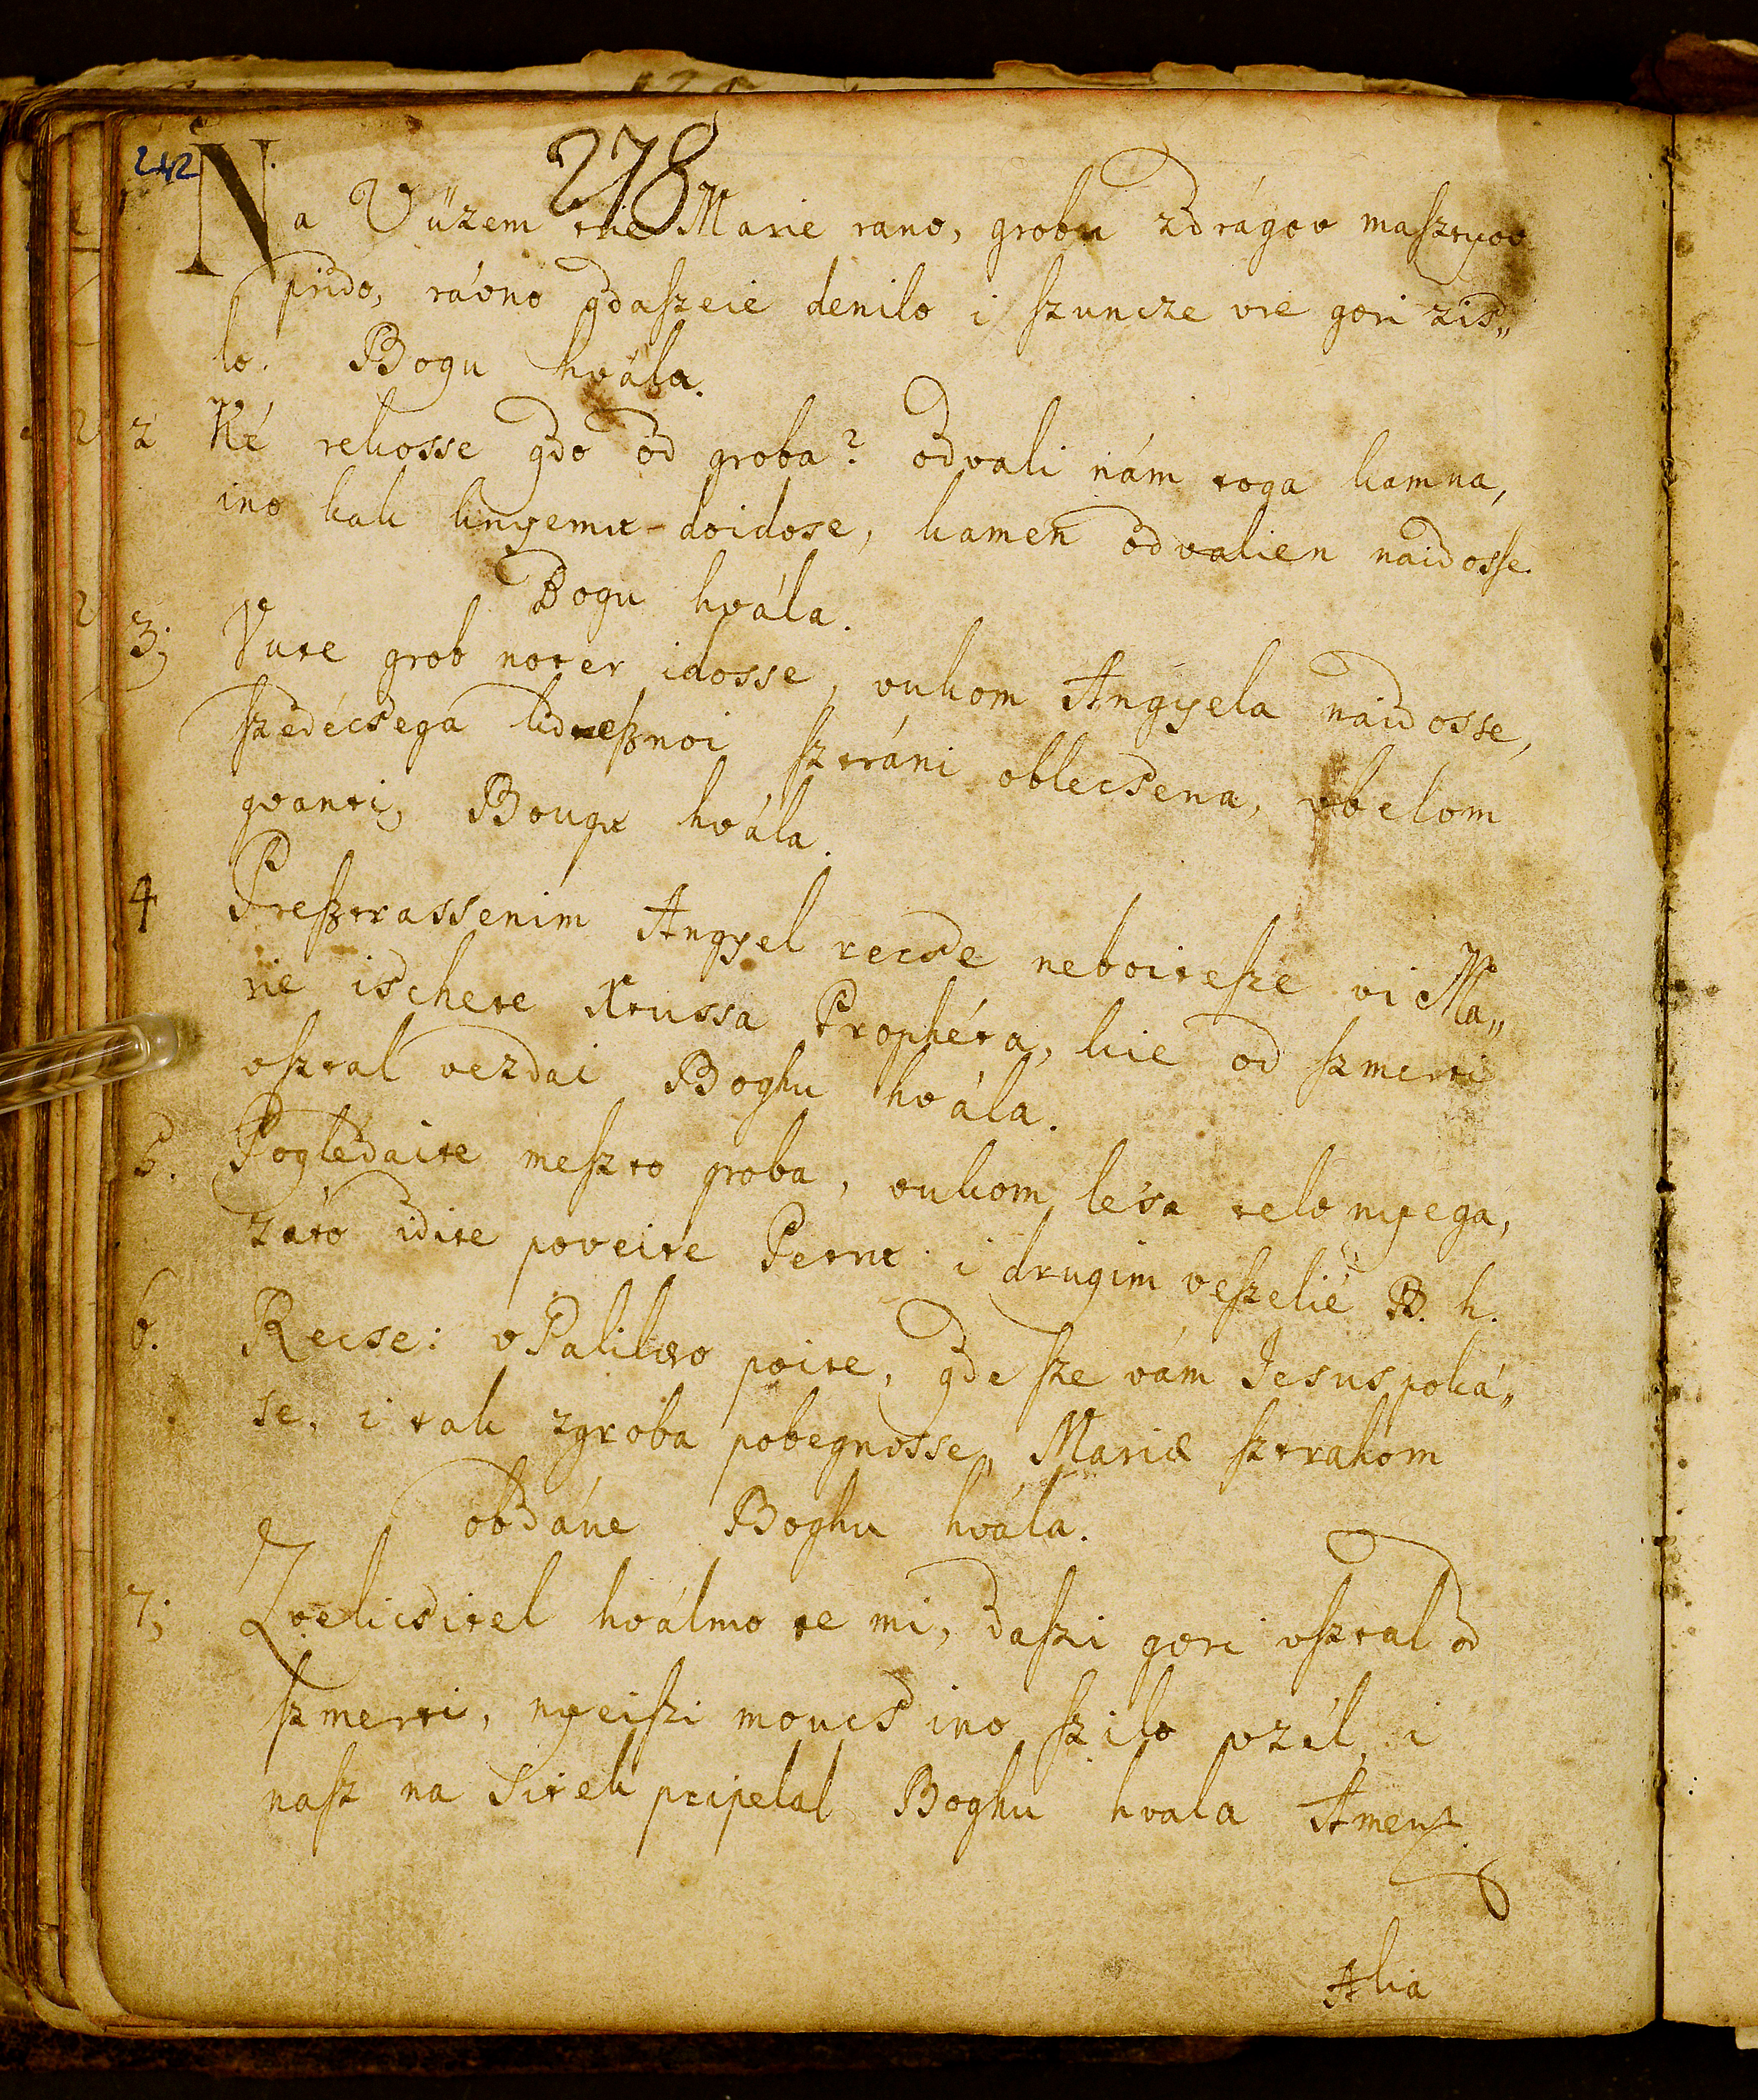 242
278
Na Vüzem trie Marie rano, grobu zdrágov masztyov
prido, rávno gdaszeie denilo i szuncze vre gori zis„
lo. Bogu hvála.
2 Ké rekosse gdo od groba? odvali nám toga kamna,
ino kak knyemu doidose, kamen odvalien naidosse
Bogu hvála.
3; Vute grob noter idosse, vukom Angyela naidosse,
szedécsega kdeßnoi sztráni oblecsena, vbelom
gvanti, Bougu hvála.
4 Preßtrassenim Angyel recse neboitesze vi Ma„
rie ischete Xtussa Prophéta, kie od szmerti
vsztal vezdai Boghu hvála.
5. Pogledaite meszto groba, vukom lesa telo nyega,
záto idite poveite Petru i drugim veszelié B. h.
6. Recse: vGalilæo poite, gde sze vám Jesus poká„
se, i tak zgroba pobegnosse, Mariæ sztrahom
obdáne Boghu hvála.
7; Zvelicsitel hválmo te mi, daszi gori vsztal od
szmerti, nyeiszi moucs ino szilo vzél, i
nasz na sitek pripelal Boghu hvala Amen
Alia